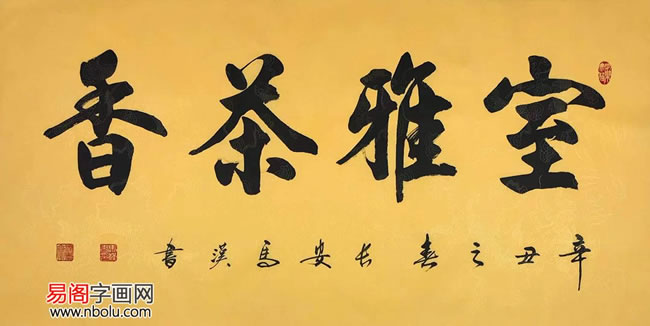 室雅茶香
辛丑之春长安马汉书
易阁字画网
www.nbolu.com